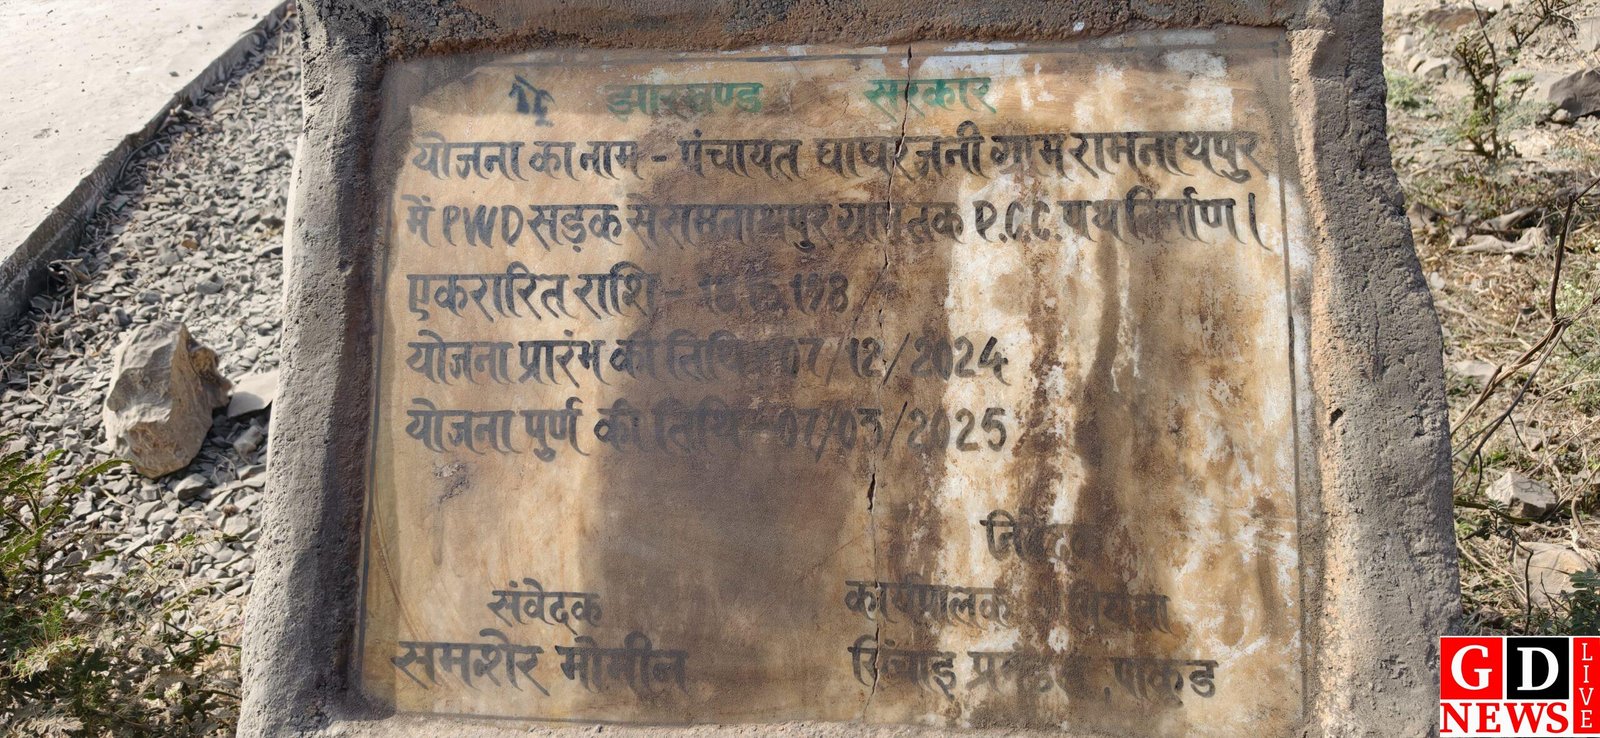 झारखण्ड सरकार
योजना का नाम - पंचायत घाघरजनी ग्राम रामनाथपुर
में PWD सड़क से रामनाथपुर ग्राम तक P.C.C. पथ निर्माण।
एकरारित राशि -
योजना प्रारंभ की तिथि - 07/12/2024
योजना पुर्ण की तिथि - 07/03/2025
संवेदक
कार्यपालक
समशेर मोमीन
सिंचाइ प्रमंडल, पाकुड
GD
NEWS
LIVE